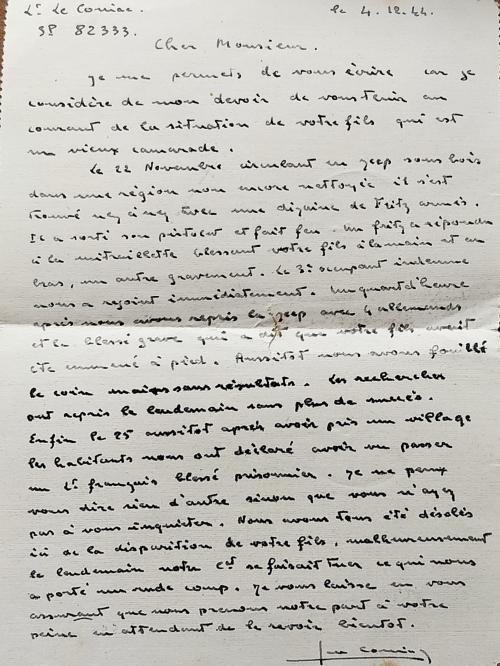 Lt Le Coniac. le 4.12.44.
SP 82333.
Cher Monsieur.
Je me permets de vous écrire car je
considère de mon devoir de vous tenir au
courant de la situation de votre fils qui est
un vieux camarade.
Le 22 Novembre circulant en jeep sous bois
dans une région non encore nettoyée il s'est
trouvé nez à nez avec une dizaine de Fritz armés.
Il a sorti son pistolet et fait feu. Un fritz a répondu
à la mitraillette blessant votre fils à la main et au
bras, un autre gravement. Le 3e occupant indemne
nous a rejoint immédiatement. Un quart d'heure
après nous avons repris la jeep avec 4 allemands
et le blessé grave qui a dit que votre fils avait
été emmené à pied. Aussitot nous avons fouillé
le coin mais sans résultats. Les recherches
ont repris le lendemain sans plus de succès.
Enfin le 25 aussitot après avoir pris un village
les habitants nous ont déclaré avoir vu passer
un Lt français blessé prisonnier. Je ne peux
vous dire rien d'autre sinon que vous n'ayez
pas à vous inquiéter. Nous avons tous été désolés
ici de la disparition de votre fils, malheureusement
le lendemain notre Ct se faisait tuer ce qui nous
a porté un rude coup. Je vous laisse en vous
assurant que nous prenons notre part à votre
peine en attendant de le revoir bientot.